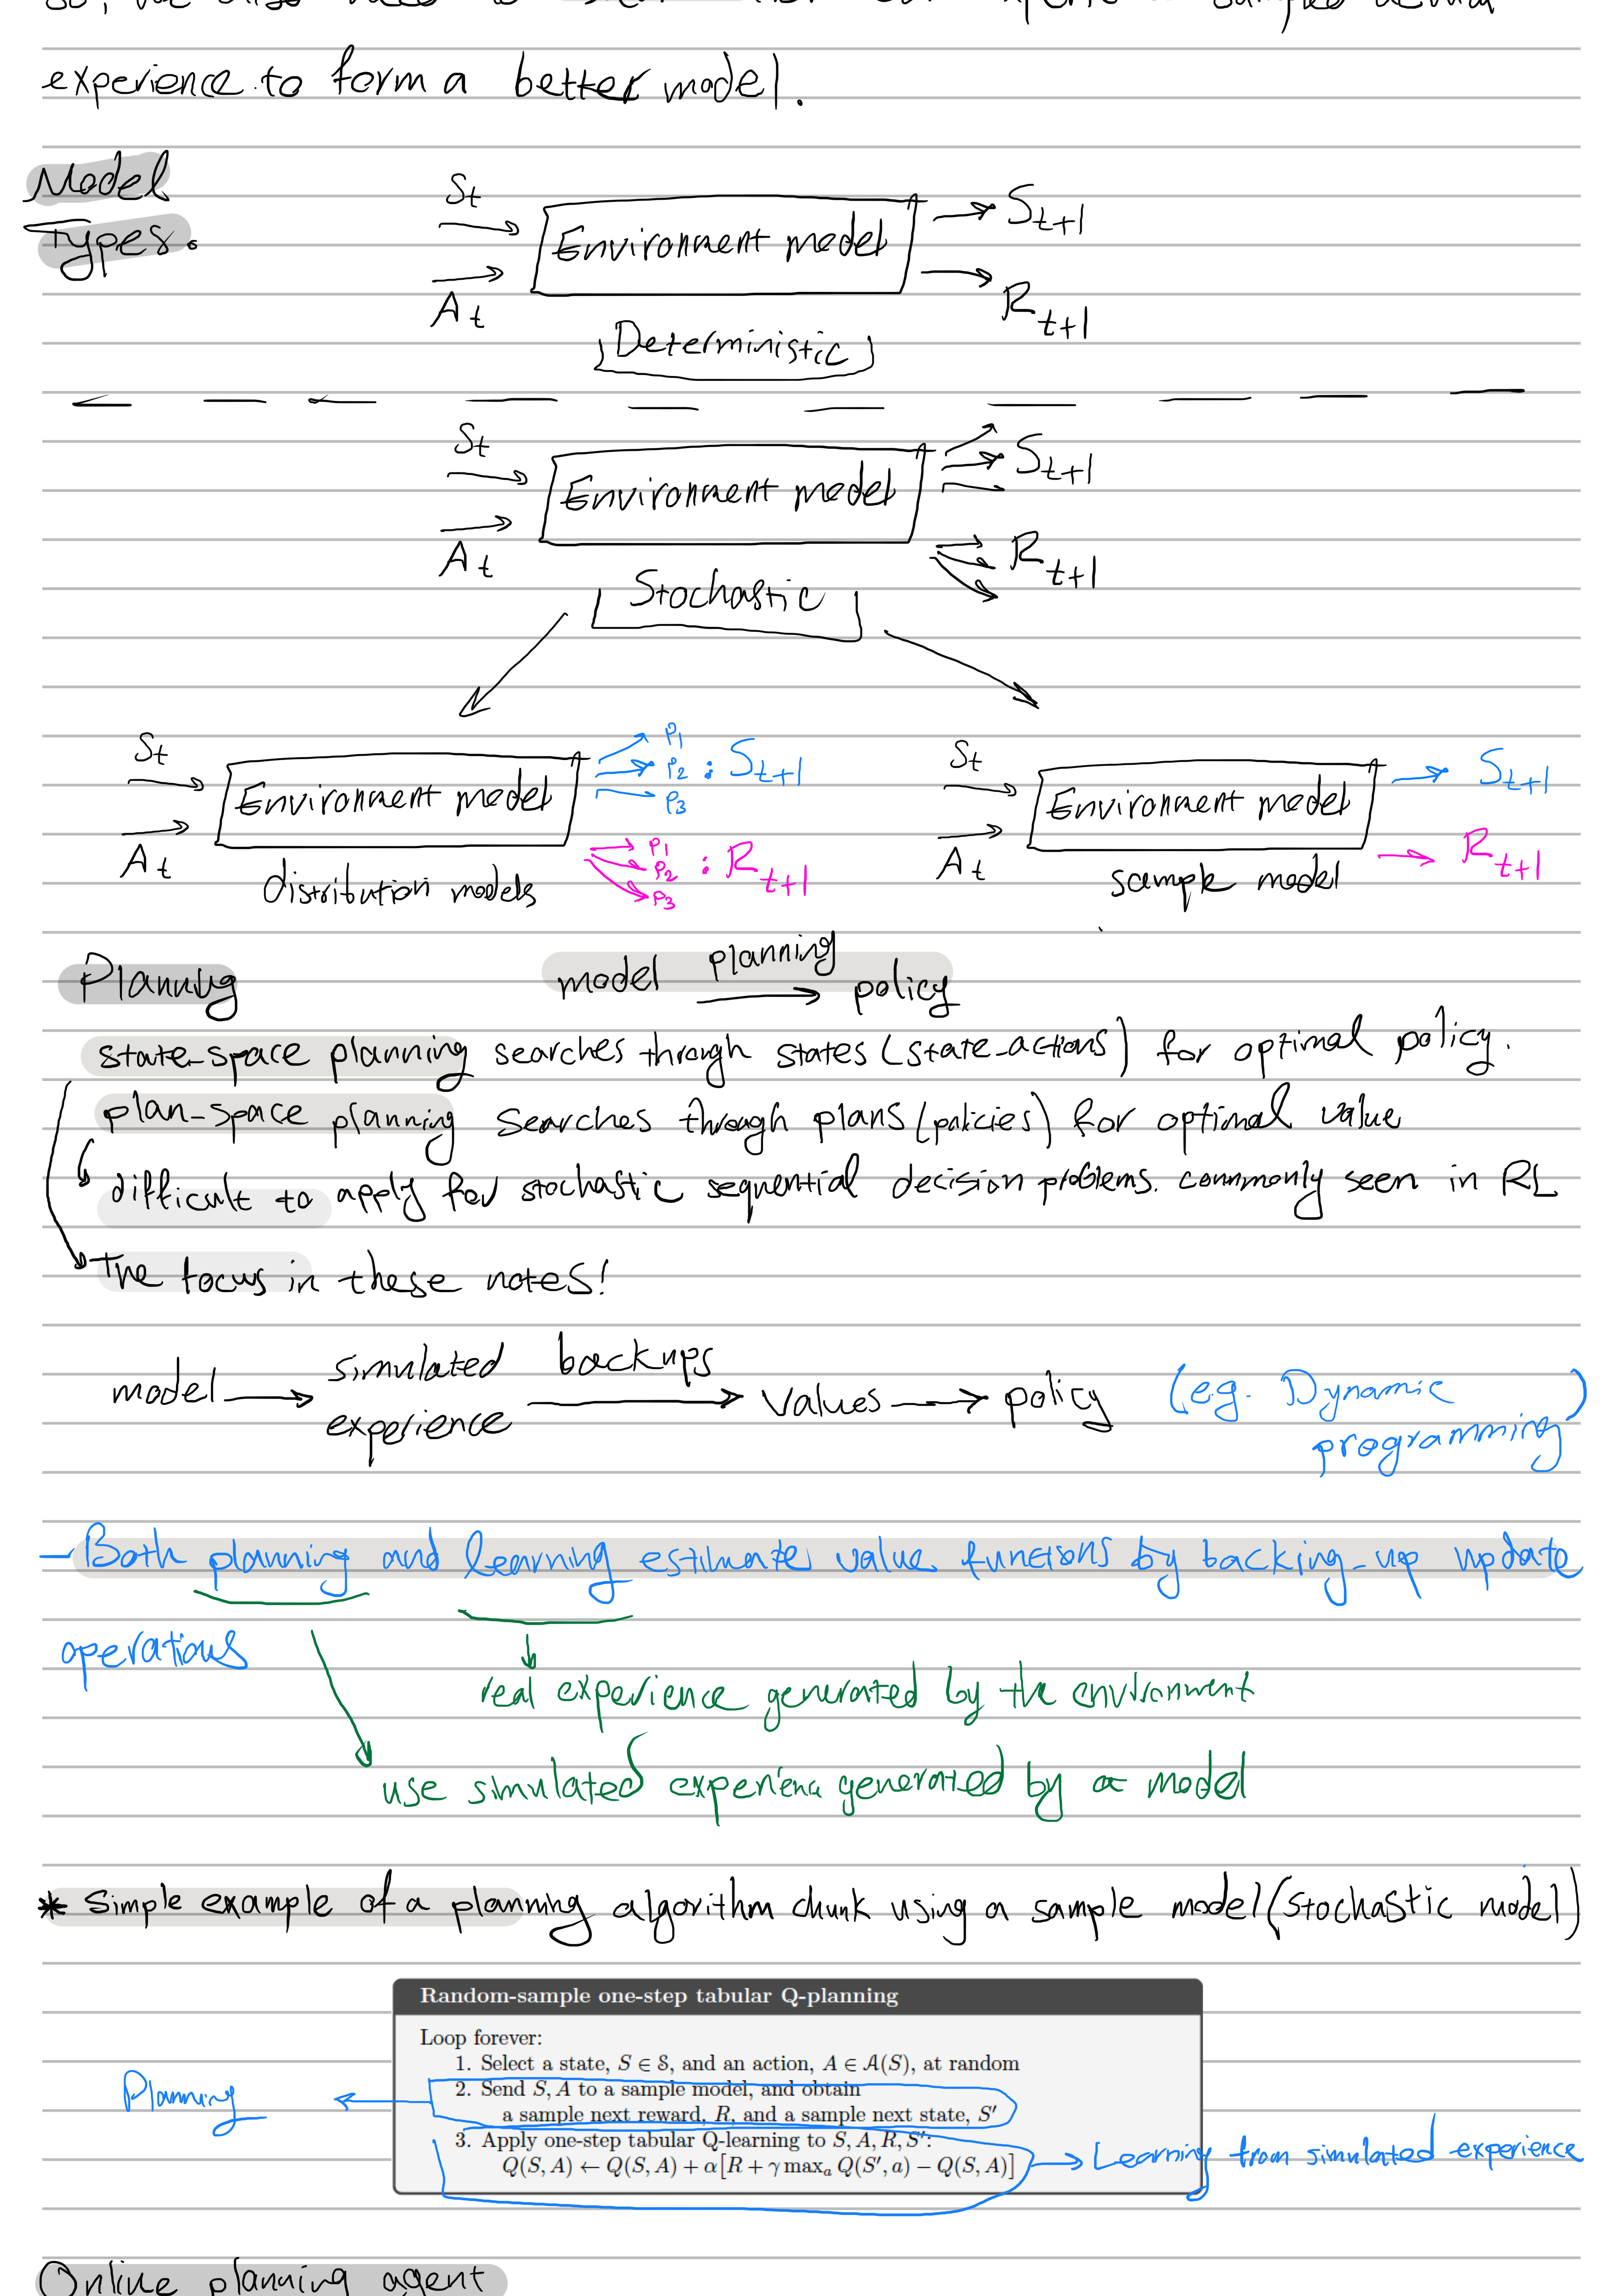 experience to form a better model.
Model
Types.
St
Environment model
St+1
At
Rt+1
Deterministic
St
Environment model
St+1
At
Rt+1
Stochastic
St
Environment model
P1
P2 : St+1
P3
At
P1
P2 : Rt+1
P3
distribution models
St
Environment model
St+1
At
Rt+1
sample model
Planning
model planning policy
state-space planning searches through states (state-actions) for optimal policy.
plan-space planning searches through plans (policies) for optimal value
difficult to apply for stochastic sequential decision problems. commonly seen in RL
The focus in these notes!
model simulated experience backups values policy (e.g. Dynamic programming)
- Both planning and learning estimate value functions by backing-up update
operations
real experience generated by the environment
use simulated experience generated by a model
* Simple example of a planning algorithm chunk using a sample model (stochastic model)
Random-sample one-step tabular Q-planning
Loop forever:
1. Select a state, S ∈ 𝒮, and an action, A ∈ 𝒜(S), at random
2. Send S, A to a sample model, and obtain
a sample next reward, R, and a sample next state, S′
3. Apply one-step tabular Q-learning to S, A, R, S′:
Q(S, A) ← Q(S, A) + α[R + γ maxₐ Q(S′, a) − Q(S, A)]
Planning
Learning from simulated experience
Online planning agent